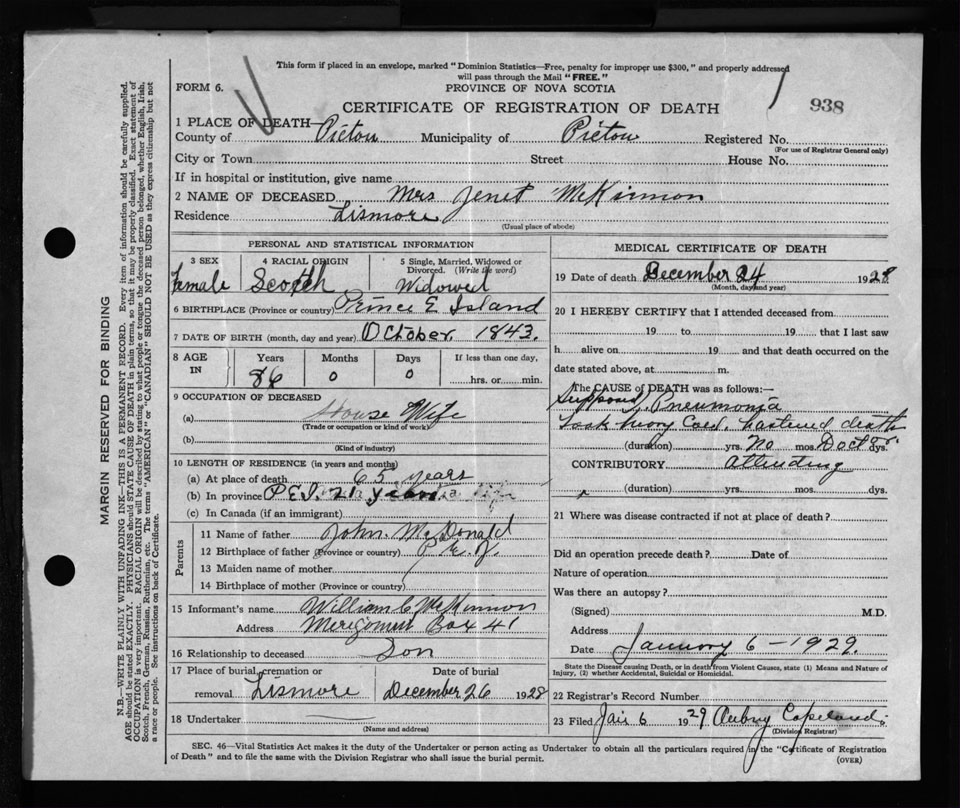 This form if placed in an envelope, marked "Dominion Statistics—Free, penalty for improper use $300," and properly addressed
will pass through the Mail "FREE."
FORM 6.
PROVINCE OF NOVA SCOTIA
CERTIFICATE OF REGISTRATION OF DEATH
938
1 PLACE OF DEATH—
County of Pictou Municipality of Pictou Registered No.
(For use of Registrar General only)
City or Town Street House No.
If in hospital or institution, give name
2 NAME OF DECEASED Mrs Jenet McKinnon
Residence Lismore
(Usual place of abode)
PERSONAL AND STATISTICAL INFORMATION
3 SEX 4 RACIAL ORIGIN 5 Single, Married, Widowed or Divorced. (Write the word)
Female Scotch Widowed
6 BIRTHPLACE (Province or country) Prince E Island
7 DATE OF BIRTH (month, day and year) October, 1843.
8 AGE IN Years Months Days If less than one day,
86 0 0 hrs. or min.
9 OCCUPATION OF DECEASED
(a) House Wife
(Trade or occupation or kind of work)
(b)
(Kind of industry)
10 LENGTH OF RESIDENCE (in years and months)
(a) At place of death 65 years
(b) In province P.E.I. 21 years
(c) In Canada (if an immigrant)
Parents
11 Name of father John. McDonald
12 Birthplace of father (Province or country) P. E. I.
13 Maiden name of mother
14 Birthplace of mother (Province or country)
15 Informant's name William C McKinnon
Address Merigomish Box 41
16 Relationship to deceased Son
17 Place of burial, cremation or removal Lismore Date of burial December 26 1928
18 Undertaker
(Name and address)
MEDICAL CERTIFICATE OF DEATH
19 Date of death December 24 1928
(Month, day and year)
20 I HEREBY CERTIFY that I attended deceased from
19 to 19 that I last saw
h alive on 19 and that death occurred on the
date stated above, at m.
The CAUSE of DEATH was as follows:—
Supposed Pneumonia
Took heavy Cold, hastened death
(duration) yrs. No mos. Doctr. dys.
CONTRIBUTORY attending
(duration) yrs. mos. dys.
21 Where was disease contracted if not at place of death?
Did an operation precede death? Date of
Nature of operation
Was there an autopsy?
(Signed) M.D.
Address
Date January 6 - 1929.
State the Disease causing Death, or in death from Violent Causes, state (1) Means and Nature of Injury, (2) whether Accidental, Suicidal or Homicidal.
22 Registrar's Record Number
23 Filed Jan 6 1929 Aubry Copeland.
(Division Registrar)
SEC. 46—Vital Statistics Act makes it the duty of the Undertaker or person acting as Undertaker to obtain all the particulars required in the "Certificate of Registration
of Death" and to file the same with the Division Registrar who shall issue the burial permit.
(OVER)
MARGIN RESERVED FOR BINDING
N.B.—WRITE PLAINLY WITH UNFADING INK—THIS IS A PERMANENT RECORD. Every item of information should be carefully supplied.
AGE should be stated EXACTLY. PHYSICIANS should STATE CAUSE OF DEATH in plain terms, so that it may be properly classified. Exact statement of
OCCUPATION is very important. RACIAL ORIGIN will be described by stating to what people or tongue the deceased person belonged, whether English, Irish,
Scotch, French, German, Russian, Ruthenian, etc. The terms "AMERICAN" or "CANADIAN" SHOULD NOT BE USED as they express citizenship but not
a race or people. See instructions on back of Certificate.